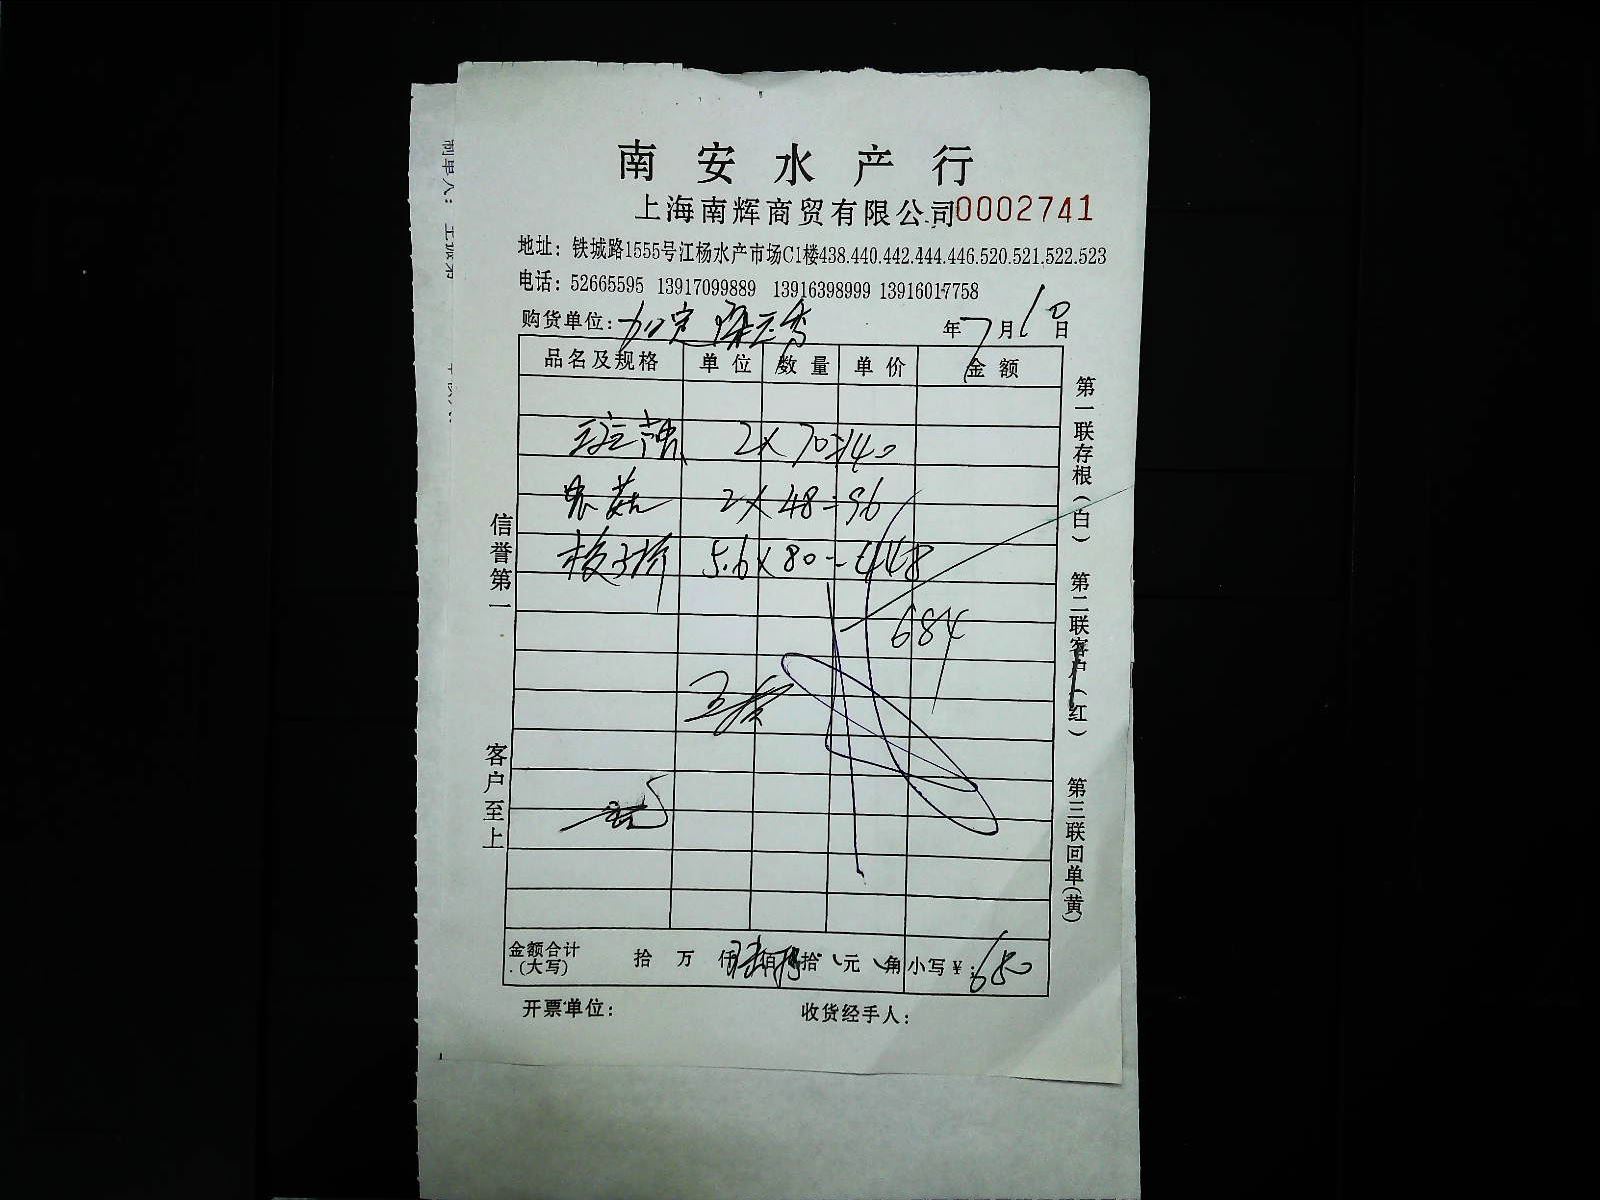 南安水产行
上海南辉商贸有限公司0002741
地址：铁城路1555号江杨水产市场C1楼438.440.442.444.446.520.521.522.523
电话：52665595 13917099889 13916398999 13916017758
购货单位：
年7月10日
品名及规格 单位 数量 单价 金额
2×70=140
2×48=96
5.6×80=448
684
金额合计（大写） 拾 万 仟 佰 拾 元 角 小写￥：680
开票单位： 收货经手人：
信誉第一
客户至上
第一联存根（白） 第二联客户（红） 第三联回单（黄）
制单人：